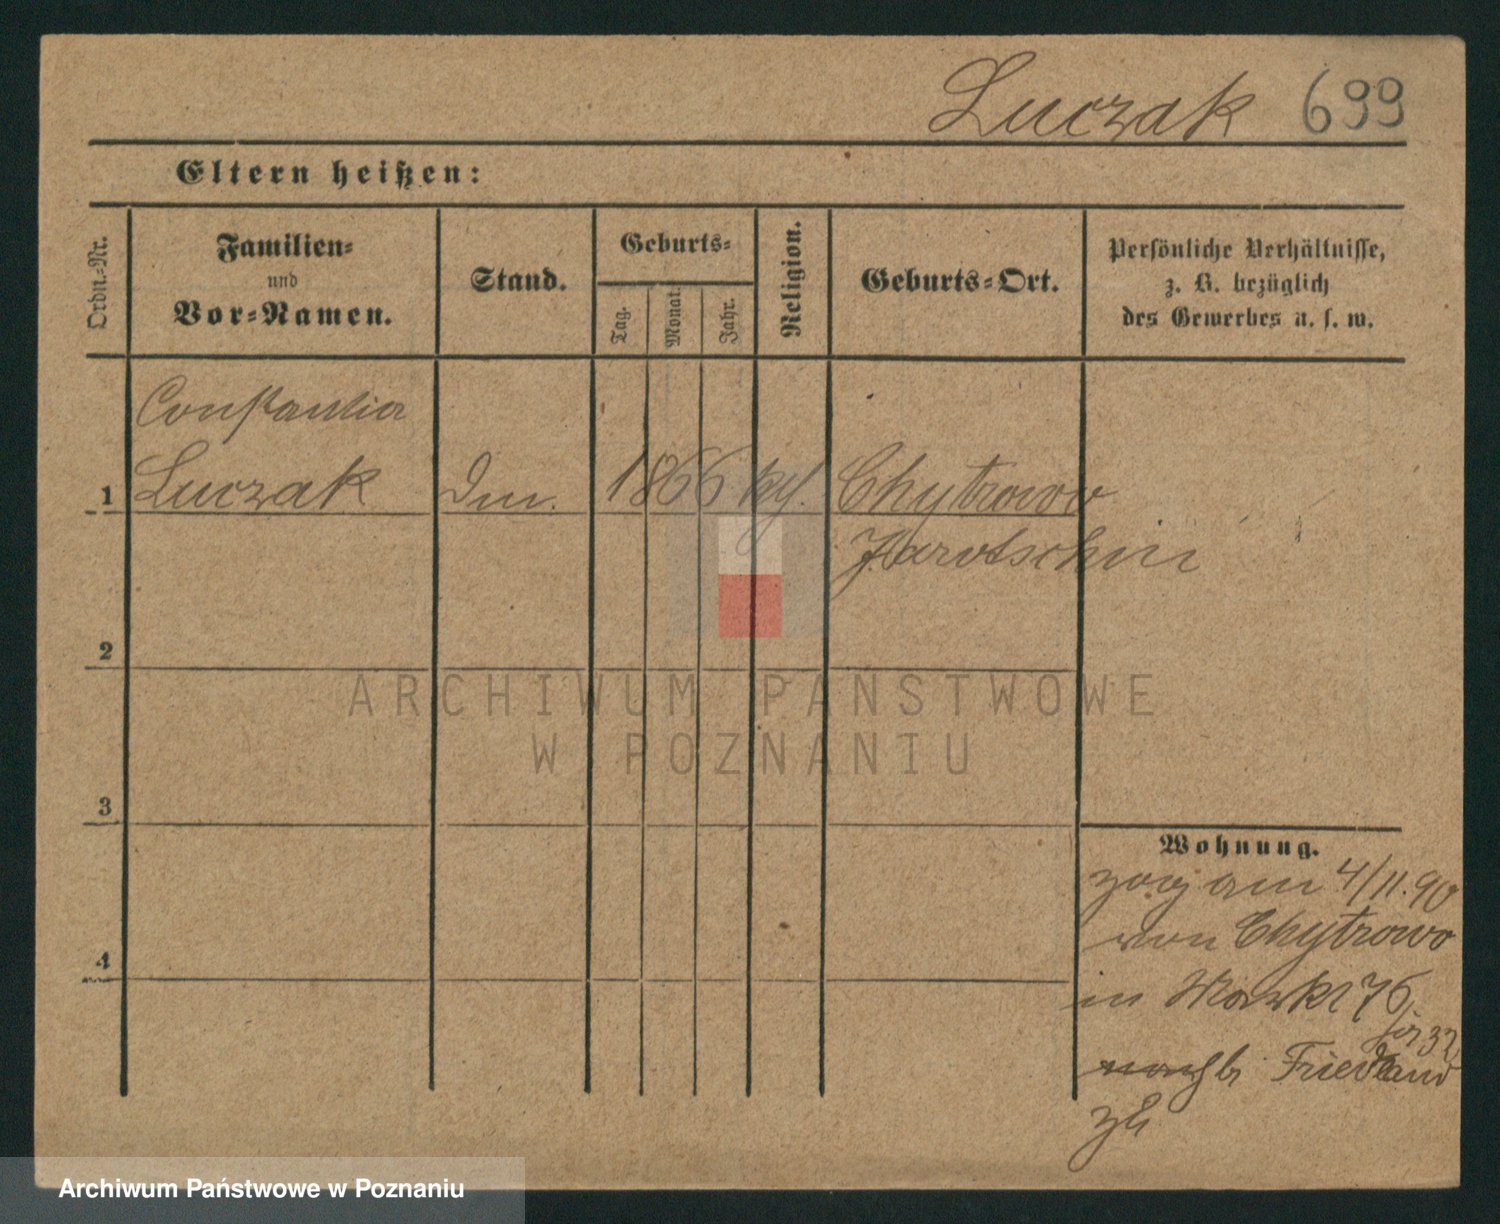 Luczak 699
Eltern heißen:
Ordn.-Nr.
Familien-
und
Vor-Namen.
Stand.
Geburts-
Tag.
Monat.
Jahr.
Religion.
Geburts-Ort.
Persönliche Verhältnisse,
z. B. bezüglich
des Gewerbes u. s. w.
Constantia
1 Luczak 1866 Chytrowo
Jarotschin
2
3
4
Wohnung.
zog am 4/11.90
von Chytrowo
in Markt 76
bi Friedland
ARCHIWUM PAŃSTWOWE
W POZNANIU
Archiwum Państwowe w Poznaniu